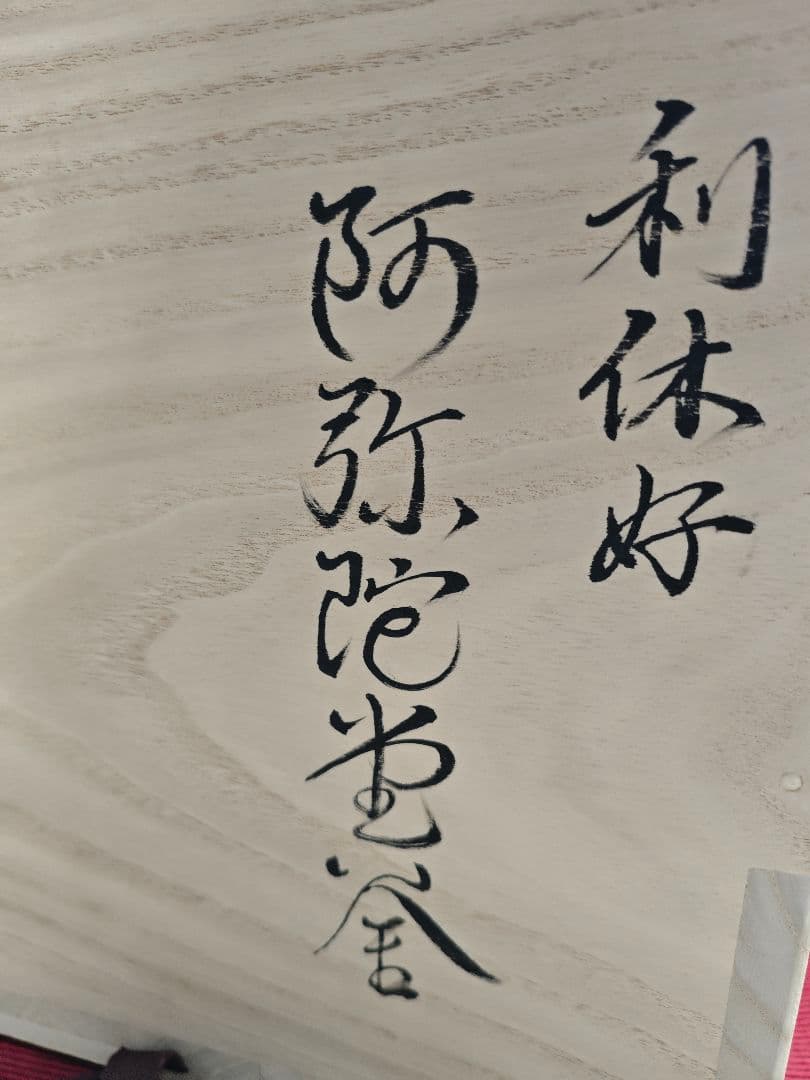 利休好
阿弥陀堂釜